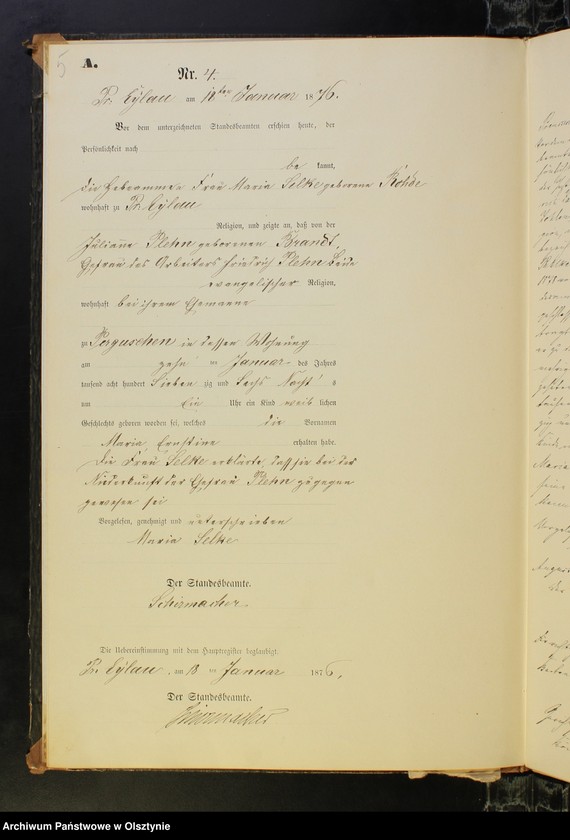 5
A.
Nr. 4.
Pr. Eylau am ten Januar 1876.
Vor dem unterzeichneten Standesbeamten erschien heute, der
Persönlichkeit nach
be kannt,
die Hebamme Frau Maria Selke geborene Rohde
wohnhaft zu Pr. Eylau
Religion, und zeigte an, daß von der
Juliane Plehn geborenen Brandt,
Ehefrau des Arbeiters Friedrich Plehn beide
evangelischer Religion,
wohnhaft bei ihrem Ehemanne
zu Perguschen in dessen Wohnung
am zehn ten Januar des Jahres
tausend acht hundert Sieben zig und Sechs Nacht s
um Ein Uhr ein Kind weib lichen
Geschlechts geboren worden sei, welches die Vornamen
Maria Ernstine erhalten habe.
Die Frau Selke erklärte, dass sie bei der
Niederkunft der Ehefrau Plehn zugegen
gewesen sei
Vorgelesen, genehmigt und unterschrieben
Maria Selke
Der Standesbeamte.
Schirmacher
Die Uebereinstimmung mit dem Hauptregister beglaubigt.
Pr. Eylau, am ten Januar 1876.
Der Standesbeamte.
Schirmacher
Archiwum Państwowe w Olsztynie